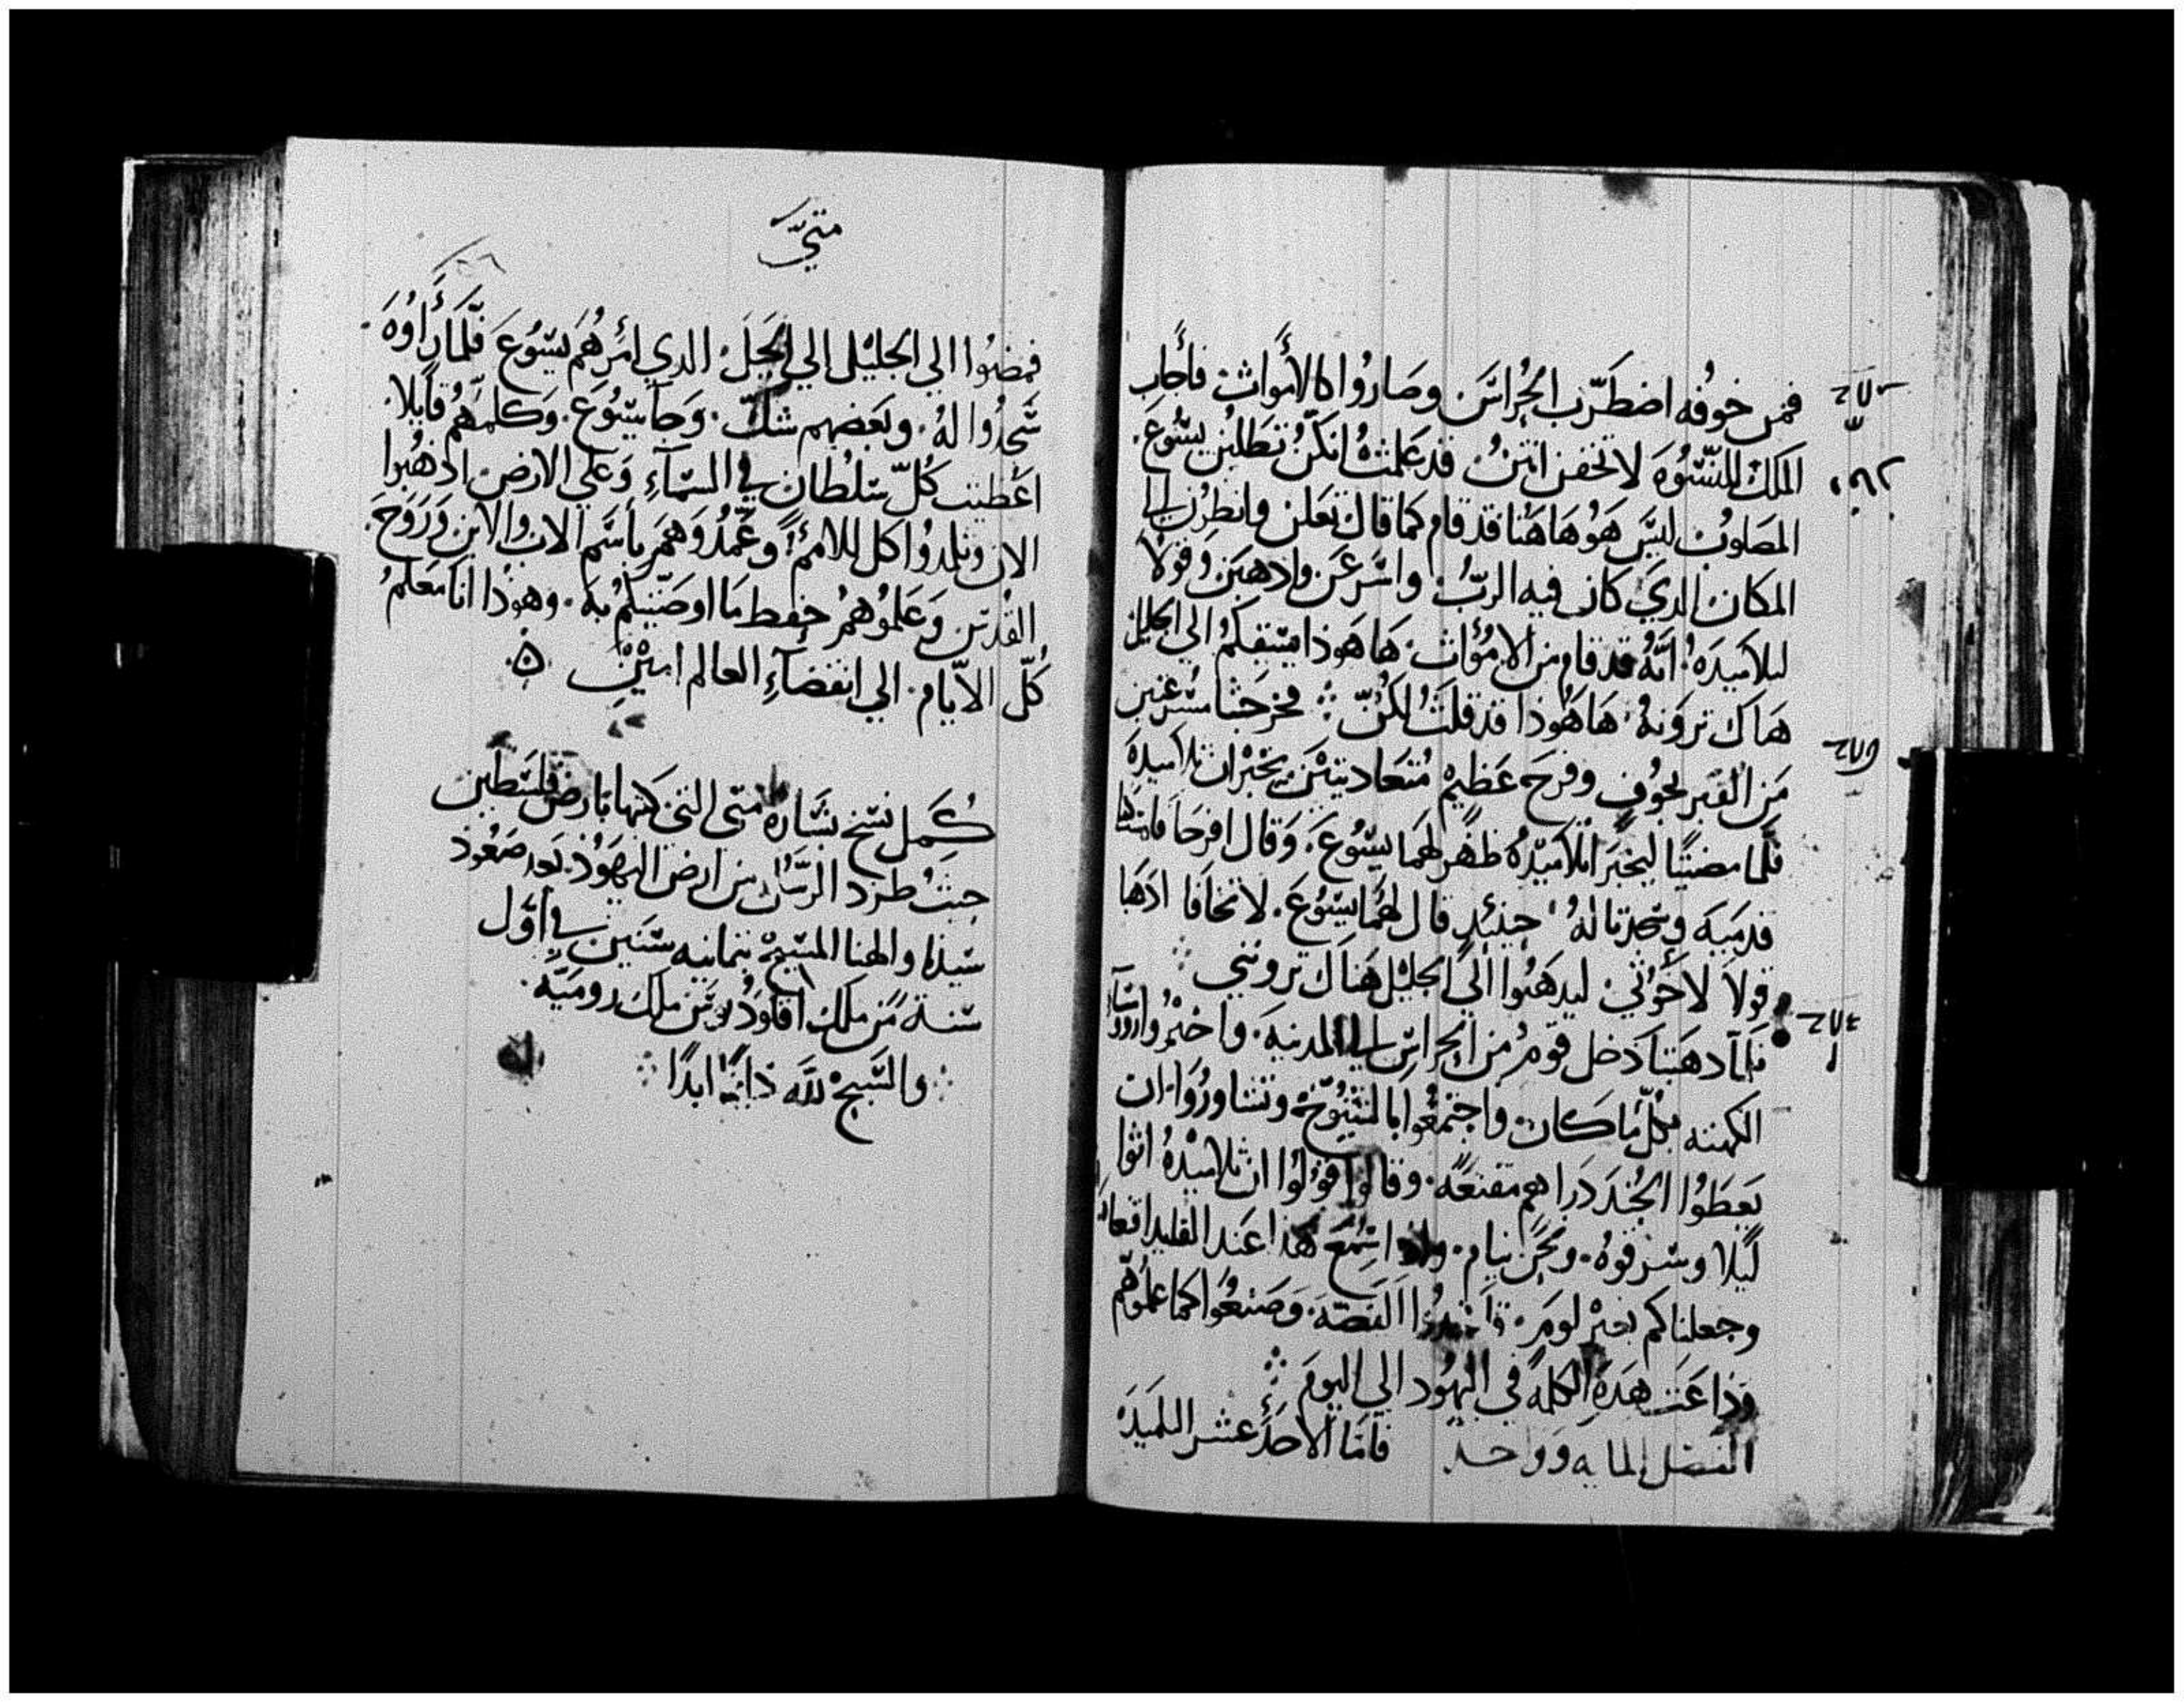 فمن خوفه اضطرب الحراس وصاروا كالأموات فأجاب
الملك للنسوه لا تخفن انتن قد علمت انكن تطلبن يسوع
المصلوب ليس هو هاهنا قد قام كما قال تعلن وانظرن الى
المكان الدي كان فيه الرب واسرعن وادهبن وقولا
لتلاميده انه قد قام من الاموات ها هودا يسبقكم الي الجليل
هناك ترونه ها هودا قد قلت لكن فخرجتا مسرعتين
من القبر بخوف وفرح عظيم متعاديتين يخبران تلاميده
فلما مضتيا ليخبرا تلاميده ظهر لهما يسوع وقال افرحا فامسكتا
قدميه وسجدتا له حينئد قال لهما يسوع لا تخافا ادهبا
قولا لاخوتي ليدهبوا الي الجليل هناك ترونني
فلما دهبتا دخل قوم من الحراس الى المدينه واخبروا روسا
الكهنه بكل ما كان واجتمعوا بالشيوخ وتشاوروا ان
يعطوا الجند دراهم مقنعه وقالوا قولوا ان تلاميده اتوا
ليلا وسرقوه ونحن نيام وادا سمع هدا عند القايد اقنعناه
وجعلناكم بغير لوم فاخدوا الفضه وصنعوا كما علموهم
وداعت هده الكلمه في اليهود الي اليوم
الفصل المايه وواحد فاما الاحد عشر التلميد
متي
فمضوا الي الجليل الي الجبل الدي امرهم يسوع فلما راوه
سجدوا له وبعضهم شك وجا يسوع وكلمهم قايلا
اعطيت كل سلطان في السماء وعلي الارض ادهبوا
الان وتلمدوا كل الامم وعمدوهم باسم الاب والابن وروح
القدس وعلموهم حفظ ما اوصيتكم به وهودا انا معكم
كل الايام الي انقضاء العالم امين
كمل نسخ بشاره متي التي كتبها بارض فلسطين
حيث طرد الرسل من ارض اليهود بعد صعود
سيدنا والهنا المسيح بثمانيه سنين في اول
سنة من ملك اقلاوديوس ملك روميه
والتسبيح لله دايما ابدا